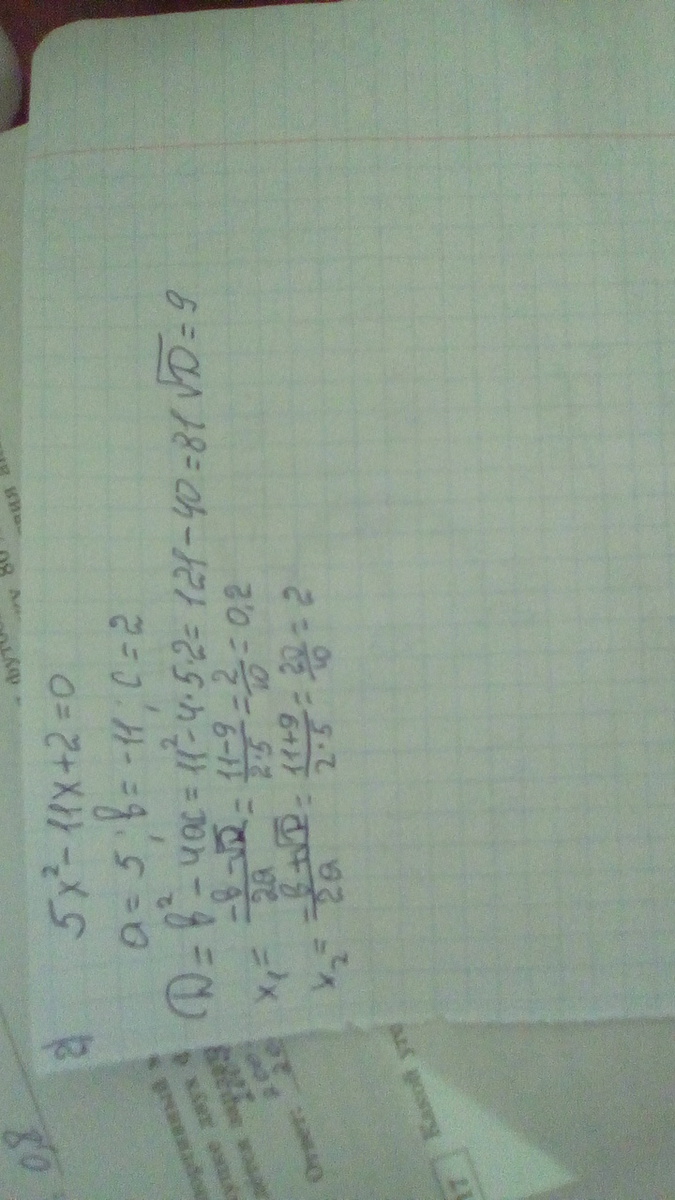 2) 5x² - 11x + 2 = 0
a = 5; b = -11; c = 2
D = b² - 4ac = 11² - 4·5·2 = 121 - 40 = 81 √D = 9
x₁ = (-b - √D)/(2a) = (11 - 9)/(2·5) = 2/10 = 0,2
x₂ = (-b + √D)/(2a) = (11 + 9)/(2·5) = 20/10 = 2
Ответ:
17 Какой